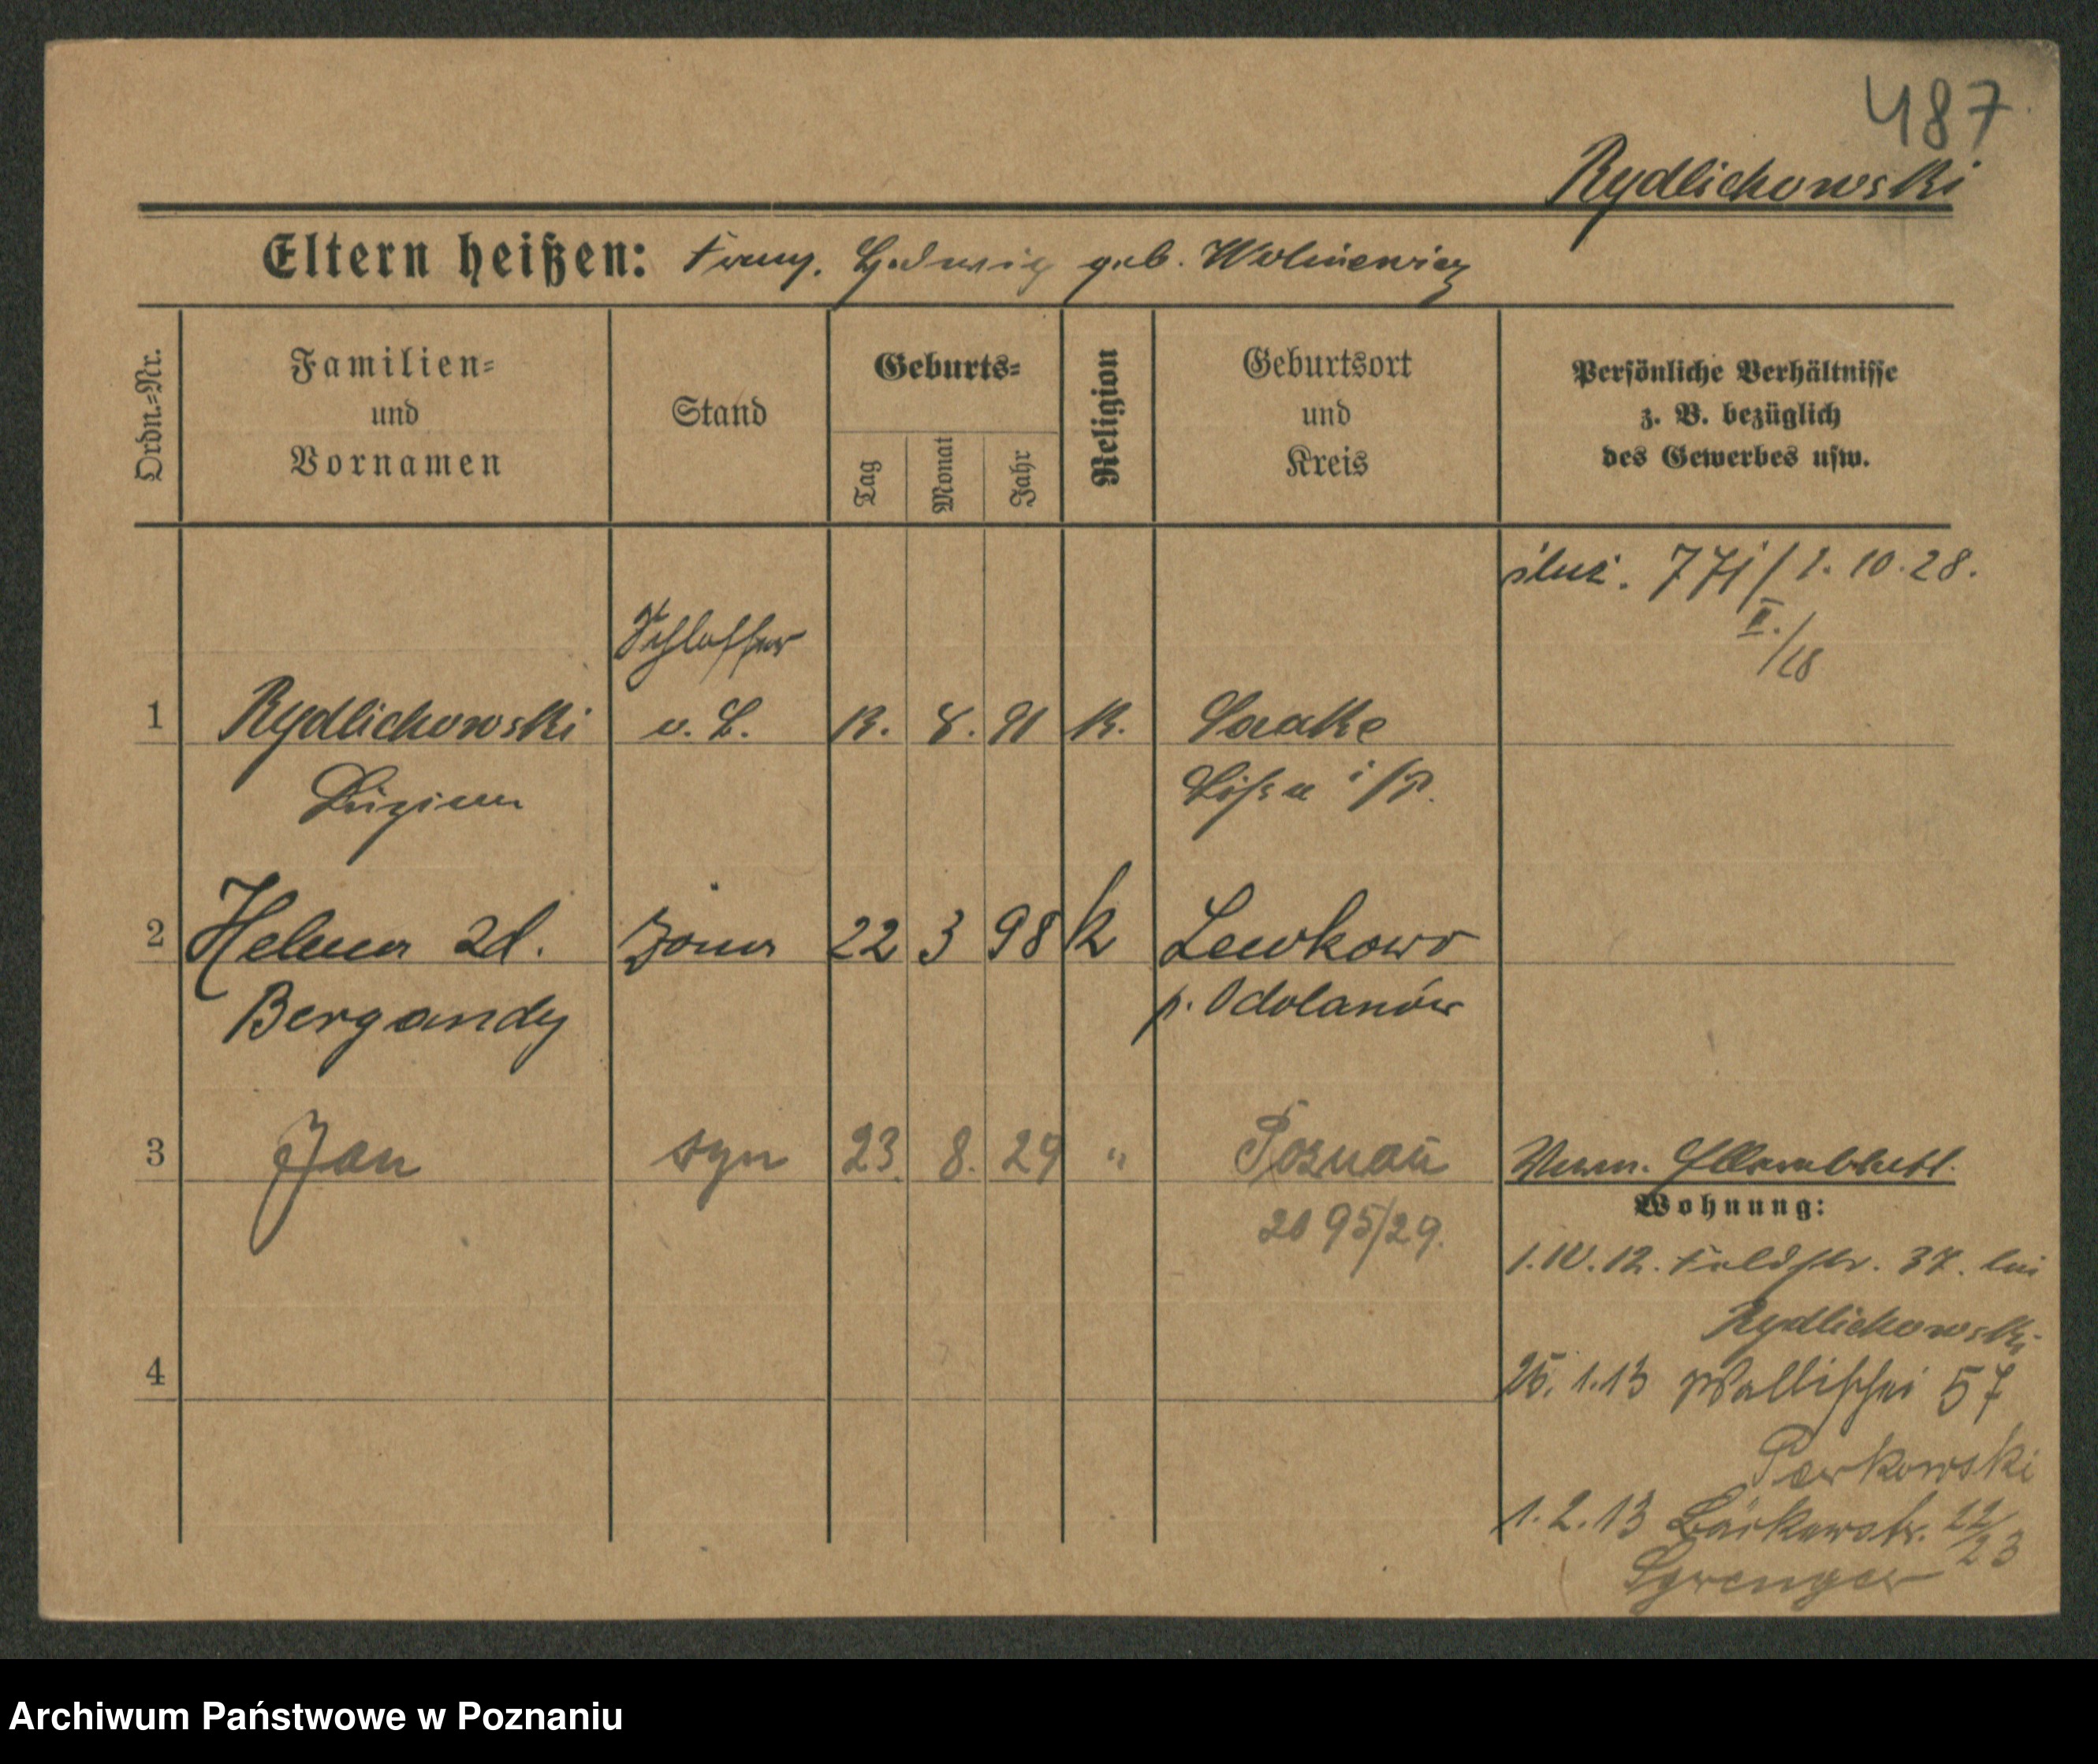 487
Rydlichowski
Eltern heißen: Franz. Hedwig geb. Wolniewicz
Ordn.=Nr.
Familien=
und
Vornamen
Stand
Geburts=
Tag
Monat
Jahr
Religion
Geburtsort
und
Kreis
Persönliche Verhältnisse
z. B. bezüglich
des Gewerbes usw.
1. 10. 28.
II./28
Schlosser
1 Rydlichowski v. L. 12. 8. 91 K.
Lissa i/P.
2 Helena zd. żona 22 3 98 k Lewkowo
Bergandy p. Odolanów
3 Jan syn 23. 8. 29 " Poznań
2095/29.
Wohnung:
1.IV.12. Feldstr. 37. bei
Rydlichowski
4
25. 1.13 Wallischei 57
Parkowski
1. 2. 13 Bäckerstr. 22/23
Sprenger
Archiwum Państwowe w Poznaniu